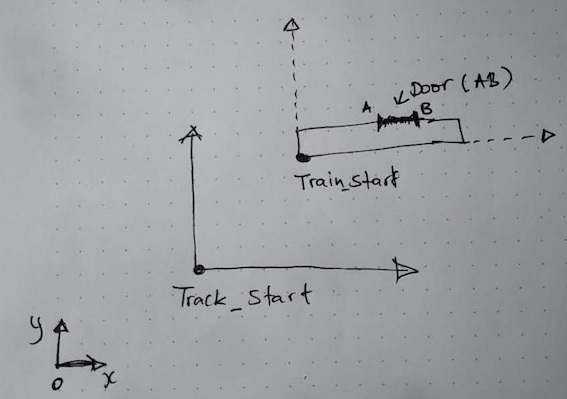 Door (AB)
A
B
Train_Start
Track_Start
y
o
x